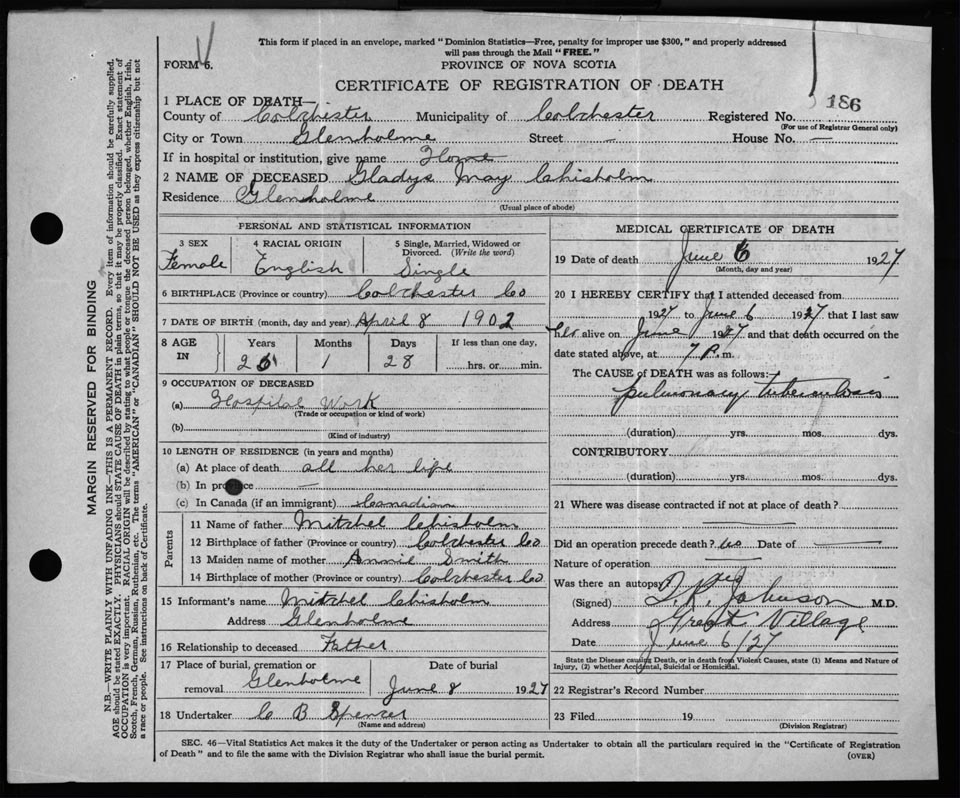 This form if placed in an envelope, marked "Dominion Statistics—Free, penalty for improper use $300," and properly addressed
will pass through the Mail "FREE."
FORM 6.
PROVINCE OF NOVA SCOTIA
CERTIFICATE OF REGISTRATION OF DEATH
186
1 PLACE OF DEATH—
County of Colchister Municipality of Colchester Registered No.
(For use of Registrar General only)
City or Town Glenholme Street — House No.
If in hospital or institution, give name Home
2 NAME OF DECEASED Gladys May Chisholm
Residence Glenholme
(Usual place of abode)
PERSONAL AND STATISTICAL INFORMATION
3 SEX 4 RACIAL ORIGIN 5 Single, Married, Widowed or Divorced. (Write the word)
Female English Single
6 BIRTHPLACE (Province or country) Colchester Co
7 DATE OF BIRTH (month, day and year) April 8 1902
8 AGE IN Years Months Days If less than one day,
25 1 28 hrs. or min.
9 OCCUPATION OF DECEASED
(a) Hospital Work
(Trade or occupation or kind of work)
(b)
(Kind of industry)
10 LENGTH OF RESIDENCE (in years and months)
(a) At place of death all her life
(b) In province —
(c) In Canada (if an immigrant) Canadian
Parents
11 Name of father Mitchel Chisholm
12 Birthplace of father (Province or country) Colchester Co
13 Maiden name of mother Annie Smith
14 Birthplace of mother (Province or country) Colchester Co
15 Informant's name Mitchel Chisholm
Address Glenholme
16 Relationship to deceased Father
17 Place of burial, cremation or removal Glenholme Date of burial June 8 1927
18 Undertaker C B Spencer
(Name and address)
MEDICAL CERTIFICATE OF DEATH
19 Date of death June 6 1927
(Month, day and year)
20 I HEREBY CERTIFY that I attended deceased from
1927 to June 6 1927 that I last saw
her alive on June 1927 and that death occurred on the
date stated above, at 7 P. m.
The CAUSE of DEATH was as follows:
pulmonary tuberculosis
(duration) yrs. mos. dys.
CONTRIBUTORY
(duration) yrs. mos. dys.
21 Where was disease contracted if not at place of death?
Did an operation precede death? no Date of
Nature of operation
Was there an autopsy? no
(Signed) T. R. Johnson M.D.
Address Great Village
Date June 6/27
State the Disease causing Death, or in death from Violent Causes, state (1) Means and Nature of
Injury, (2) whether Accidental, Suicidal or Homicidal.
22 Registrar's Record Number
23 Filed 19
(Division Registrar)
SEC. 46—Vital Statistics Act makes it the duty of the Undertaker or person acting as Undertaker to obtain all the particulars required in the "Certificate of Registration
of Death" and to file the same with the Division Registrar who shall issue the burial permit.
(OVER)
MARGIN RESERVED FOR BINDING
N.B.—WRITE PLAINLY WITH UNFADING INK—THIS IS A PERMANENT RECORD. Every item of information should be carefully supplied.
AGE should be stated EXACTLY. PHYSICIANS should STATE CAUSE OF DEATH in plain terms, so that it may be properly classified. Exact statement of
OCCUPATION is very important. RACIAL ORIGIN will be described by stating to what people or tongue the deceased person belonged, whether English, Irish,
Scotch, French, German, Russian, Ruthenian, etc. The terms "AMERICAN" or "CANADIAN" SHOULD NOT BE USED as they express citizenship but not
a race or people. See instructions on back of Certificate.